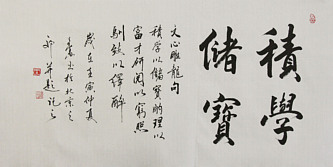 積學
儲寶
文心雕龍句
積學以儲寶酌理以
富才研閱以窮照
馴致以繹辭
歲在壬寅仲夏
於北京